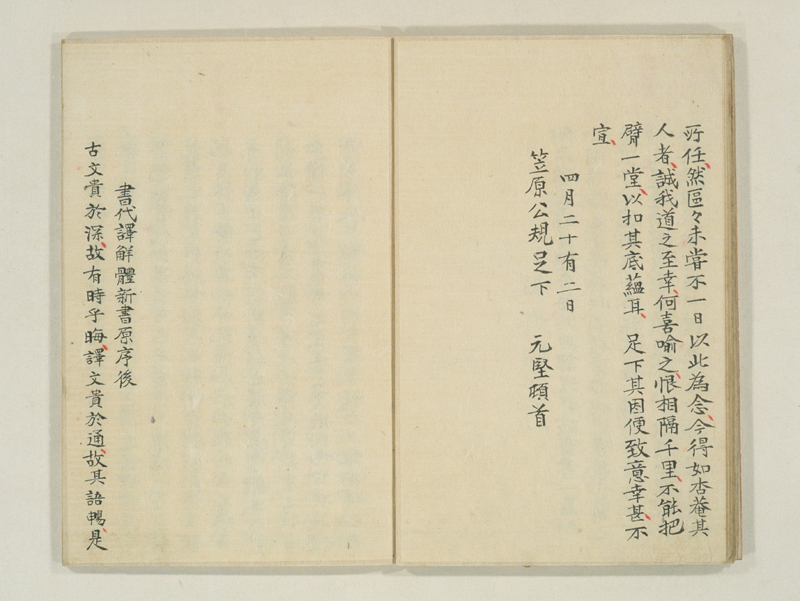 所任、然區々未嘗不一日以此為念、今得如杏菴其
人者、誠我道之至幸、何喜喻之、恨相隔千里、不能把
臂一堂、以扣其底蘊耳、足下其因便致意幸甚、不
宣、
四月二十有二日
笠原公規足下 元堅頓首
書代譯解體新書原序後
古文貴於深、故有時乎晦、譯文貴於通、故其語暢、是